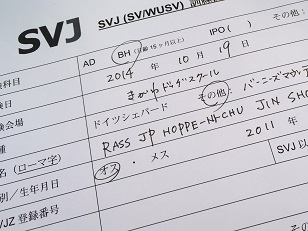 SVJ SVJ (SV/WUSV) 訓練
験科目 AD BH(月齢15ヶ月以上) IPO( ) その他:
験日 2014 年 10 月 19 日
験会場 きがわドッグスクール
種 ドイツシェパード その他: バーニーズマウンテ
名(ローマ字) RASS JP HOPPE-NI-CHU JIN SHO
別/生年月日 オス ・ メス 2011 年
SVJZ 登録番号 SVJ以